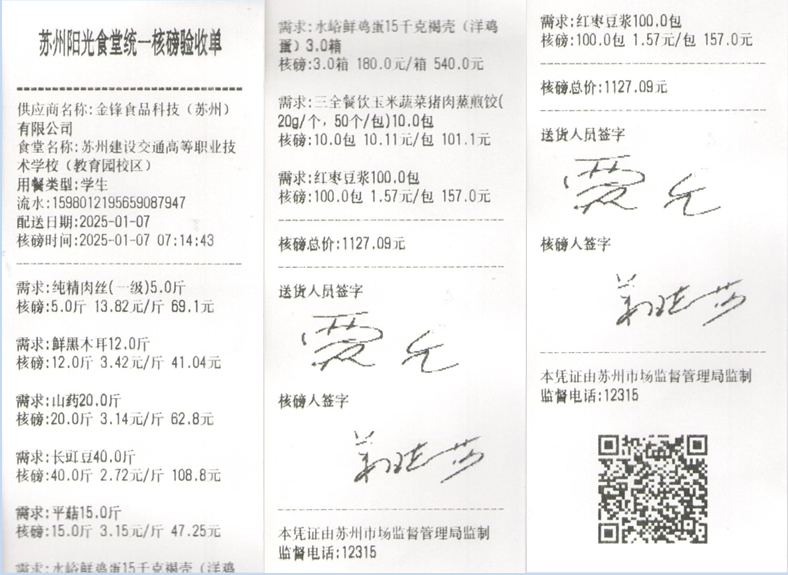 苏州阳光食堂统一核磅验收单
供应商名称:金锋食品科技（苏州）
有限公司
食堂名称:苏州建设交通高等职业技
术学校（教育园校区）
用餐类型:学生
流水:1598012195659087947
配送日期:2025-01-07
核磅时间:2025-01-07 07:14:43
需求:纯精肉丝(一级)5.0斤
核磅:5.0斤 13.82元/斤 69.1元
需求:鲜黑木耳12.0斤
核磅:12.0斤 3.42元/斤 41.04元
需求:山药20.0斤
核磅:20.0斤 3.14元/斤 62.8元
需求:长豇豆40.0斤
核磅:40.0斤 2.72元/斤 108.8元
需求:平菇15.0斤
核磅:15.0斤 3.15元/斤 47.25元
需求:水峪鲜鸡蛋15千克褐壳（洋鸡
需求:水峪鲜鸡蛋15千克褐壳（洋鸡
蛋）3.0箱
核磅:3.0箱 180.0元/箱 540.0元
需求:三全餐饮玉米蔬菜猪肉蒸煎饺(
20g/个，50个/包)10.0包
核磅:10.0包 10.11元/包 101.1元
需求:红枣豆浆100.0包
核磅:100.0包 1.57元/包 157.0元
核磅总价:1127.09元
送货人员签字
核磅人签字
本凭证由苏州市场监督管理局监制
监督电话:12315
需求:红枣豆浆100.0包
核磅:100.0包 1.57元/包 157.0元
核磅总价:1127.09元
送货人员签字
核磅人签字
本凭证由苏州市场监督管理局监制
监督电话:12315